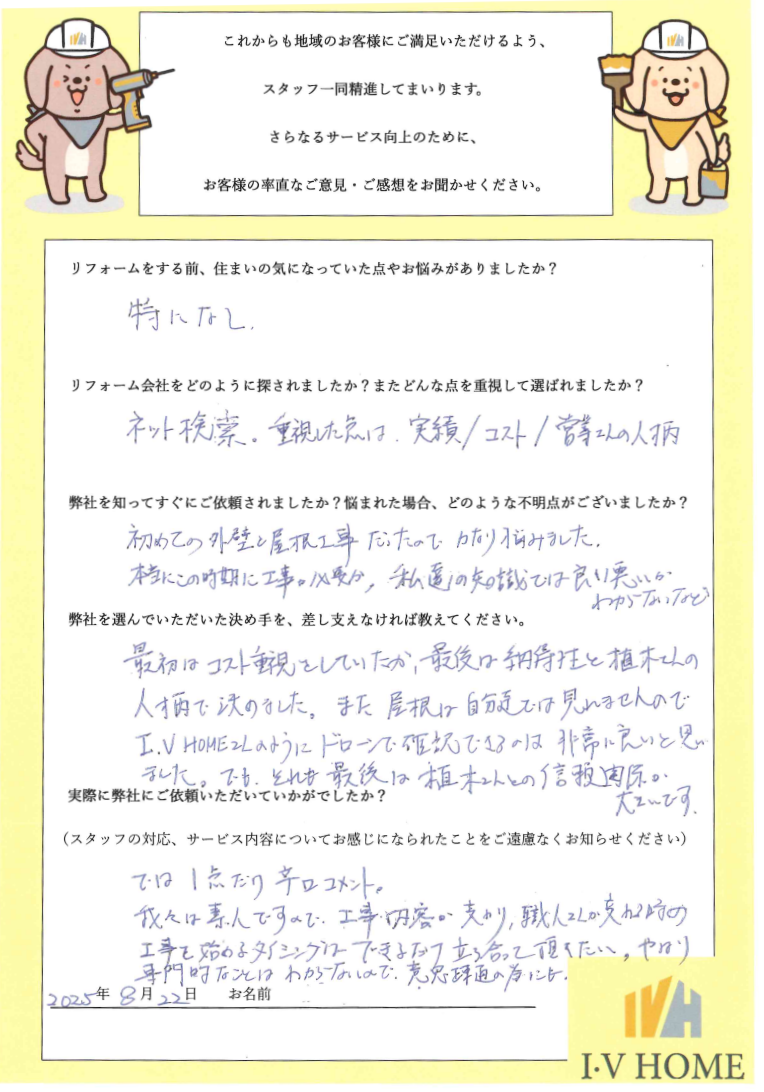 IVH
IVH
これからも地域のお客様にご満足いただけるよう、
スタッフ一同精進してまいります。
さらなるサービス向上のために、
お客様の率直なご意見・ご感想をお聞かせください。
リフォームをする前、住まいの気になっていた点やお悩みがありましたか？
特になし.
リフォーム会社をどのように探されましたか？またどんな点を重視して選ばれましたか？
ネット検索。重視した点は、実績/コスト/営業さんの人柄
弊社を知ってすぐにご依頼されましたか？悩まれた場合、どのような不明点がございましたか？
初めての外壁と屋根工事だったので かなり悩みました.
本当にこの時期に工事が必要か, 私達の知識では良い悪いが
わからないなど
弊社を選んでいただいた決め手を、差し支えなければ教えてください。
最初はコスト重視をしていたが, 最後は納得性と植木さんの
人柄で決めました。また 屋根は自分達では見れませんので
I.V HOMEさんのようにドローンで確認できるのは 非常に良いと思い
ました。でも、それも最後は植木さんとの信頼関係が
大きいです.
実際に弊社にご依頼いただいていかがでしたか？
（スタッフの対応、サービス内容についてお感じになられたことをご遠慮なくお知らせください）
では 1点だけ 辛口コメント。
我々は素人ですので、工事内容が変わり, 職人さんが変わる時の
工事を始めるタイミングは できるだけ立ち合って頂きたい。やはり
専門的なことは わからないので、意思疎通の為にも.
2025年 8月 22日 お名前
IVH
I·V HOME